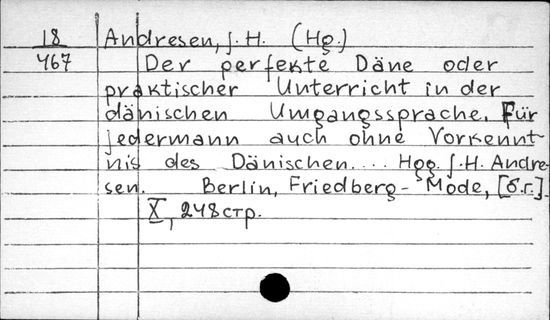 18 Andresen, J. H. (Hg.)
467 Der perfekte Däne oder
praktischer Unterricht in der
dänischen Umgangssprache. Für
jedermann auch ohne Vorkennt-
nis des Dänischen.... Hgg. J. H. Andre-
sen. Berlin, Friedberg-Mode, [б.г.].
X, 248 стр.